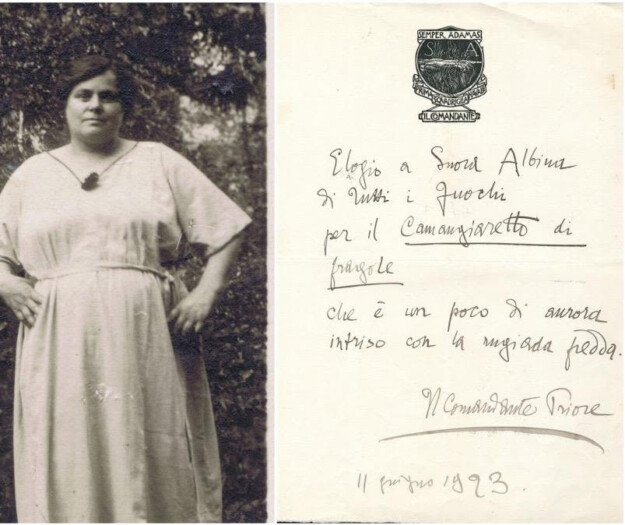 SEMPER ADAMAS
S A
IL COMANDANTE
Elogio a Suora Albina
di tutti i fuochi
per il Camangiaretto di
fragole
che è un poco di aurora
intriso con la rugiada fredda.
Il Comandante Priore
11 giugno 1923.